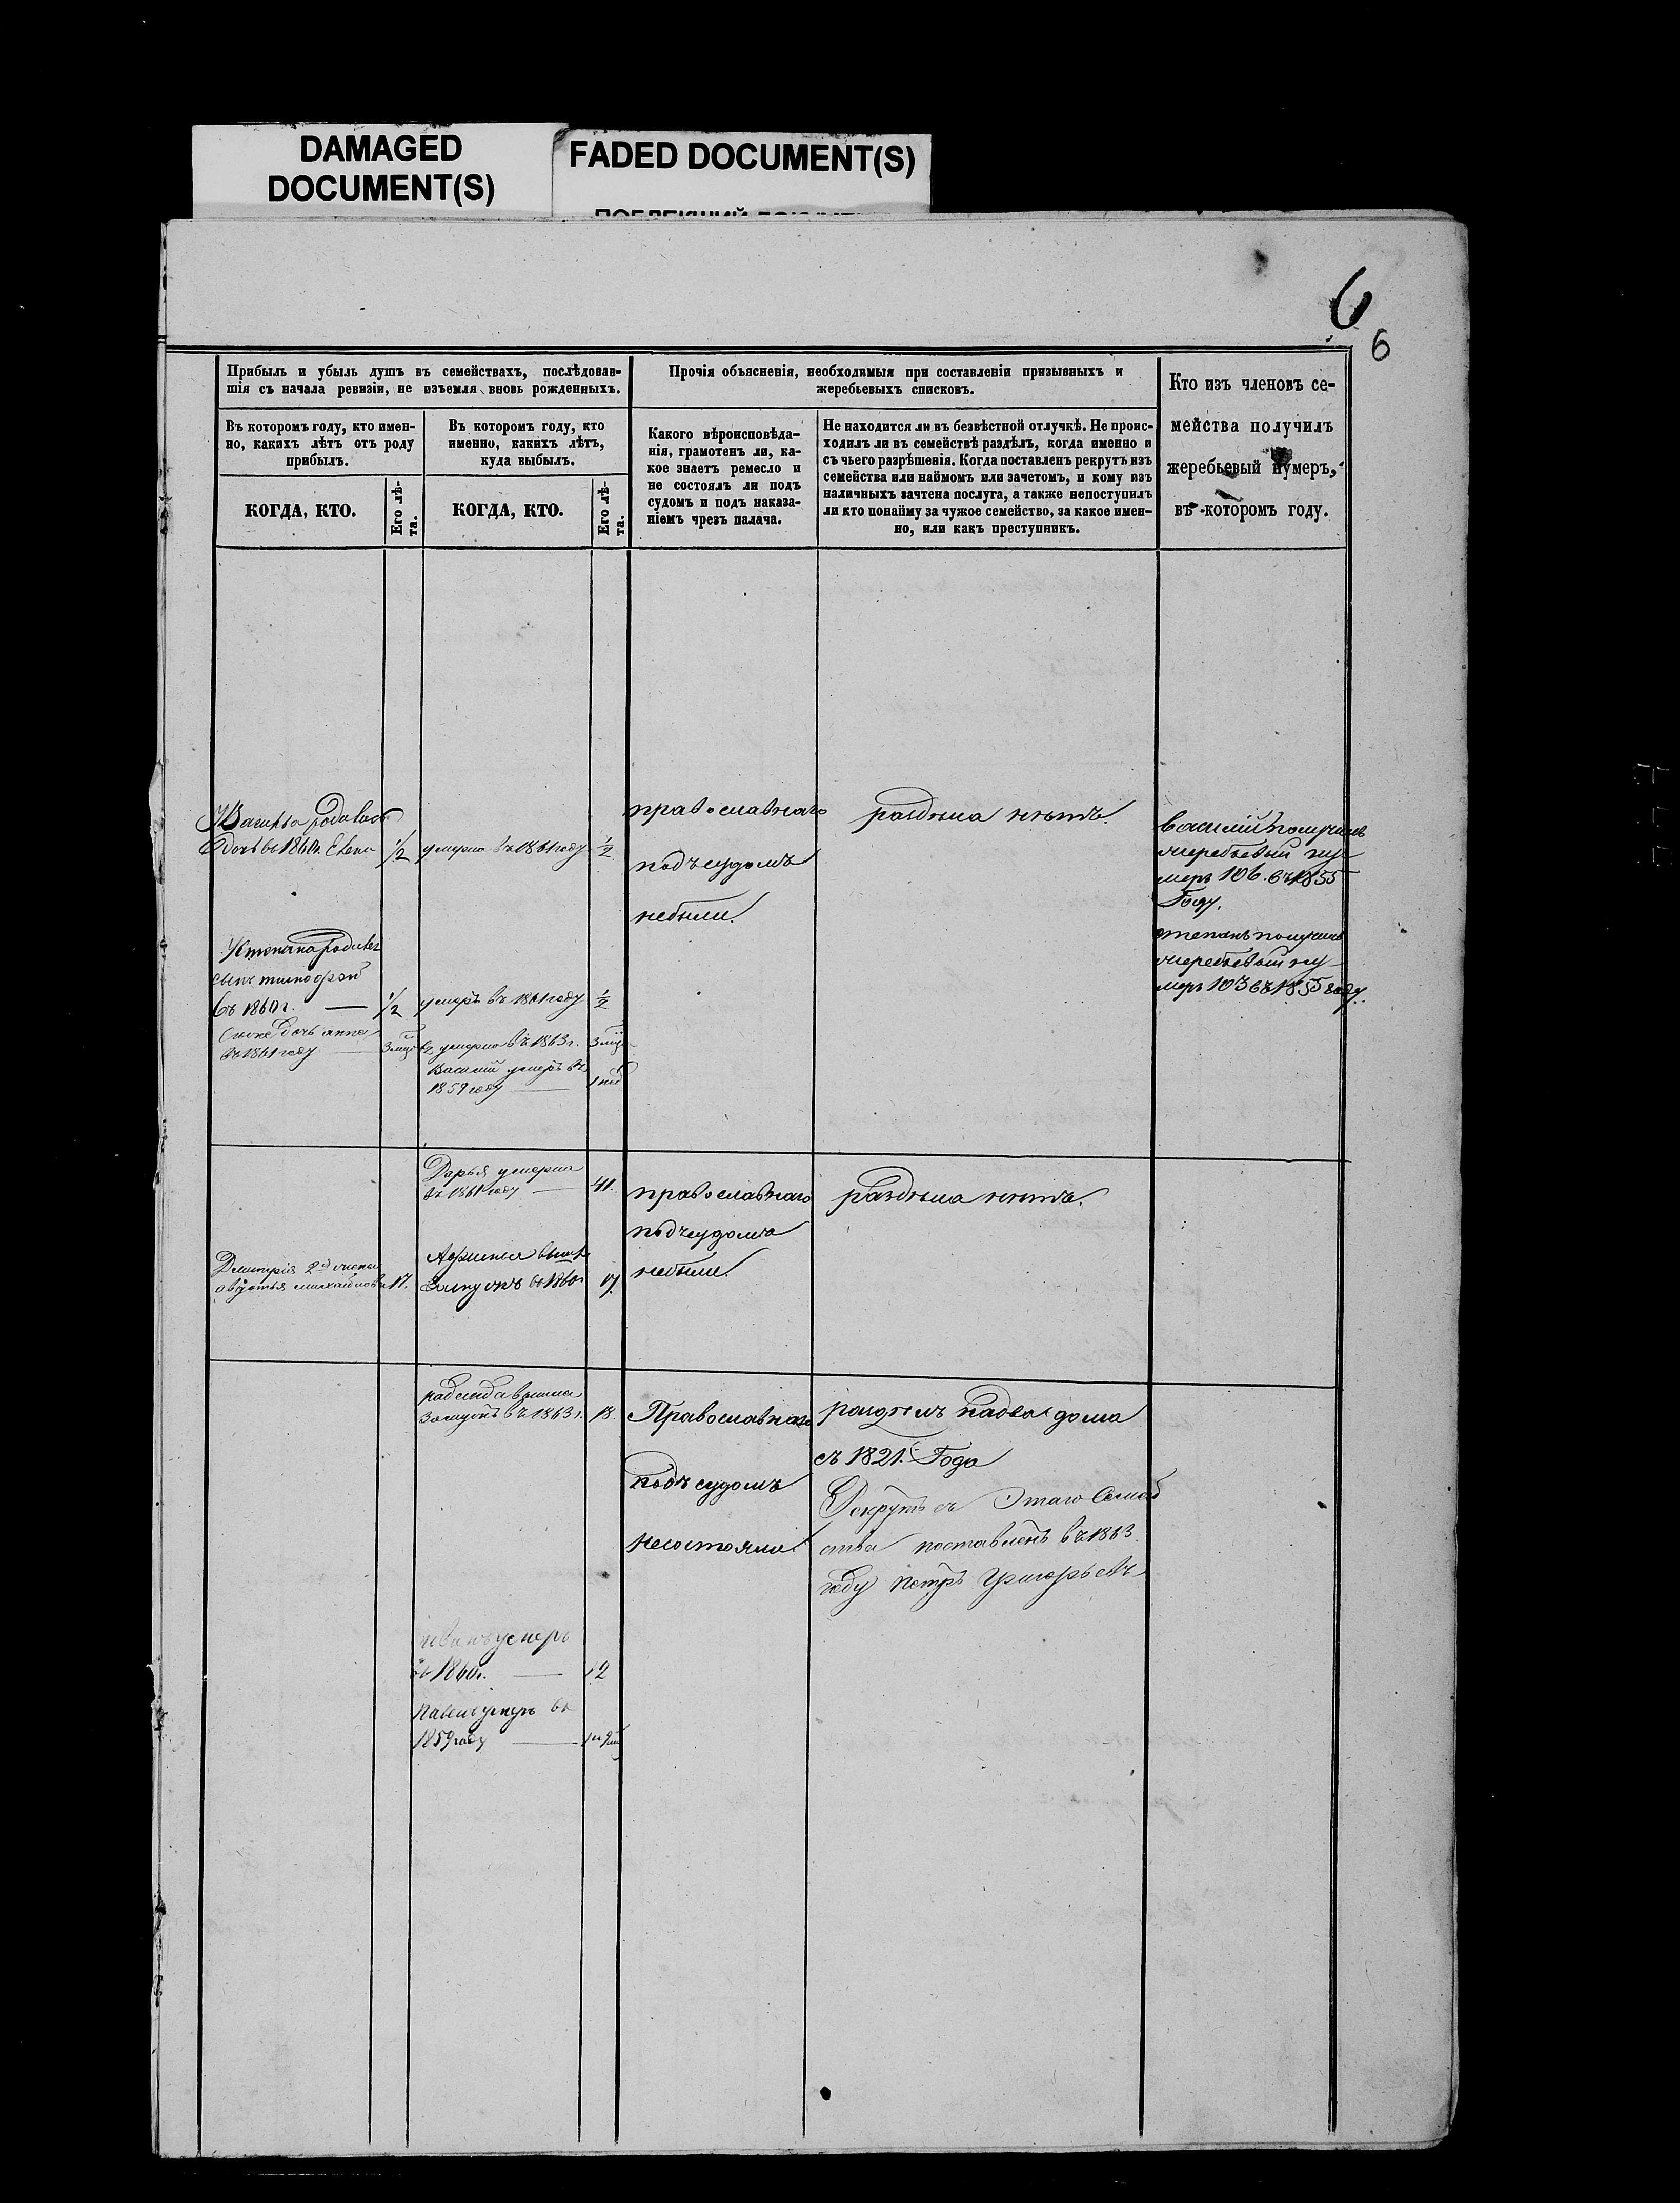 DAMAGED
DOCUMENT(S)
FADED DOCUMENT(S)
6
6
Прибыль и убыль душъ въ семействахъ, послѣдовав-
шія съ начала ревизіи, не изъемля вновь рожденныхъ.
Прочія объясненія, необходимыя при составленіи призывныхъ и
жеребьевыхъ списковъ.
Кто изъ членовъ се-
мейства получилъ
жеребьевый нумеръ,
въ которомъ году.
Въ которомъ году, кто имен-
но, какихъ лѣтъ отъ роду
прибылъ.
Въ которомъ году, кто
именно, какихъ лѣтъ,
куда выбылъ.
Какого вѣроисповѣда-
нія, грамотенъ ли, ка-
кое знаетъ ремесло и
не состоялъ ли подъ
судомъ и подъ наказа-
ніемъ чрезъ палача.
Не находится ли въ безвѣстной отлучкѣ. Не проис-
ходилъ ли въ семействѣ раздѣлъ, когда именно и
съ чьего разрѣшенія. Когда поставленъ рекрутъ изъ
семейства или наймомъ или зачетомъ, и кому изъ
наличныхъ зачтена послуга, а также непоступилъ
ли кто понайму за чужое семейство, за какое имен-
но, или какъ преступникъ.
КОГДА, КТО.
Его лѣ-
та.
КОГДА, КТО.
Его лѣ-
та.
У Василья родилась
Дочь въ 1860г. Елена
1/2
умерла въ 1861 году
1/2
православнаго
подъ судомъ
небыли.
раздѣла нѣтъ.
василій получилъ
жеребьевый ну-
меръ 106. въ 1855
Году.
степанъ получилъ
жеребьевый ну-
меръ 103 въ 1855 году.
У степана родился
сынъ тимофей
въ 1860г.
1/2
умеръ въ 1861 году
1/2
дочь анна
въ 1861 году
умерла въ 1863 г.
Василій умеръ въ
1859 году
Дарья умерла
въ 1861 году
41.
православнаго
подъ судомъ
небыли.
раздѣла нѣтъ.
Дмитрія 2й жена
авдотья михайлова
17.
вышла
Замужъ въ 1860г
17.
вышла
Замужъ въ 1863 г.
18.
Православнаго
подъ судомъ
несостояли
раздѣлъ надва дома
съ 1821. Года
Рекрутъ съ Этаго Семей
ства поставленъ въ 1863
году петръ Григорьевъ
иванъ умеръ
въ 1860г.
12
павелъ умеръ въ
1859 году